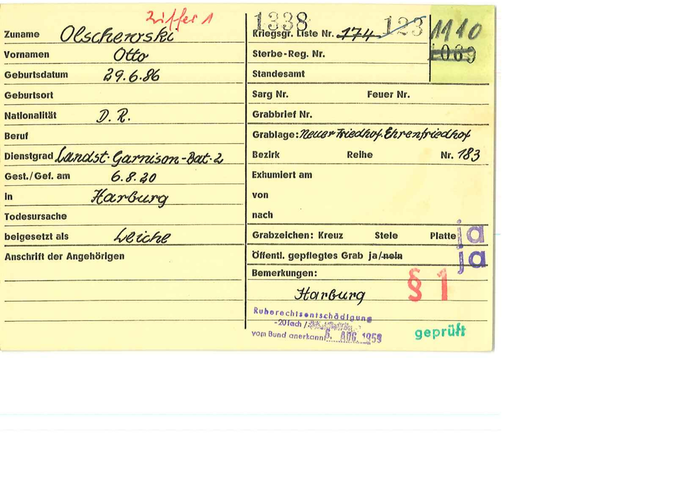 Ziffer 1
1338 123 1110
Zuname Olscheroski Kriegsgr. Liste Nr. 174
1069
Vornamen Otto Sterbe-Reg. Nr.
Geburtsdatum 29.6.86 Standesamt
Geburtsort Sarg Nr. Feuer Nr.
Nationalität D. R. Grabbrief Nr.
Beruf Grablage: Neuer Friedhof. Ehrenfriedhof
Dienstgrad Landst. Garnison-Bat. 2 Bezirk Reihe Nr. 183
Gest./Gef. am 6.8.20 Exhumiert am
in Harburg von
Todesursache nach
beigesetzt als Leiche Grabzeichen: Kreuz Stele Platte ja
Anschrift der Angehörigen Öffentl. gepflegtes Grab ja/nein ja
Bemerkungen:
Harburg § 1
Ruherechtsentschädigung
-20fach /
vom Bund anerkannt 6. AUG. 1958
geprüft